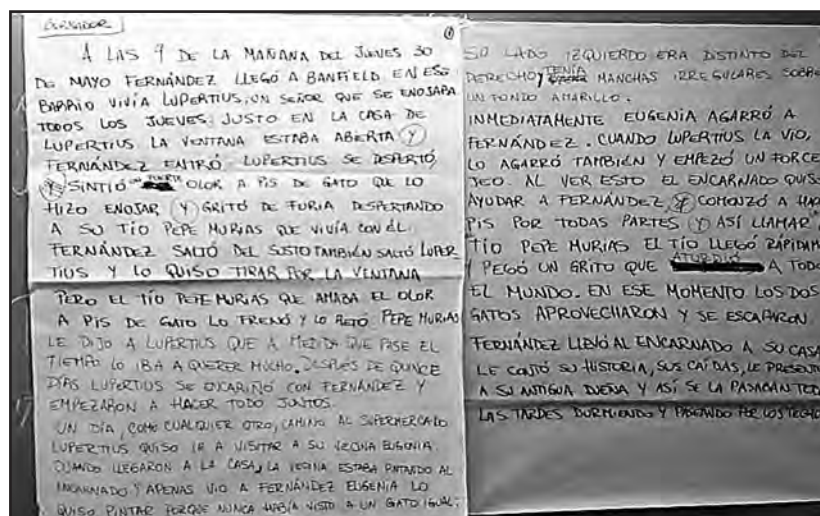 BORRADOR
①
A LAS 9 DE LA MAÑANA DEL JUEVES 30
DE MAYO FERNÁNDEZ LLEGÓ A BANFIELD EN ESE
BARRIO VIVÍA LUPERTIUS, UN SEÑOR QUE SE ENOJABA
TODOS LOS JUEVES. JUSTO EN LA CASA DE
LUPERTIUS LA VENTANA ESTABA ABIERTA Y
FERNÁNDEZ ENTRÓ. LUPERTIUS SE DESPERTÓ,
Y SINTIÓ OLOR A PIS DE GATO QUE LO
HIZO ENOJAR Y GRITÓ DE FURIA DESPERTANDO
A SU TÍO PEPE MURIAS QUE VIVÍA CON ÉL.
FERNÁNDEZ SALTÓ DEL SUSTO TAMBIÉN SALTÓ LUPER
TIUS Y LO QUISO TIRAR POR LA VENTANA
PERO EL TÍO PEPE MURIAS QUE AMABA EL OLOR
A PIS DE GATO LO FRENÓ Y LO RETÓ. PEPE MURIAS
LE DIJO A LUPERTIUS QUE A MEDIDA QUE PASE EL
TIEMPO LO IBA A QUERER MUCHO. DESPUÉS DE QUINCE
DÍAS LUPERTIUS SE ENCARIÑÓ CON FERNÁNDEZ Y
EMPEZARON A HACER TODO JUNTOS.
UN DÍA, COMO CUALQUIER OTRO, CAMINO AL SUPERMERCADO
LUPERTIUS QUISO IR A VISITAR A SU VECINA EUGENIA.
CUANDO LLEGARON A LA CASA, LA VECINA ESTABA PINTANDO AL
ENCARNADO Y APENAS VIO A FERNÁNDEZ EUGENIA LO
QUISO PINTAR PORQUE NUNCA HABÍA VISTO A UN GATO IGUAL:
SU LADO IZQUIERDO ERA DISTINTO DEL
DERECHO Y TENÍA MANCHAS IRREGULARES SOBRE
UN FONDO AMARILLO.
INMEDIATAMENTE EUGENIA AGARRÓ A
FERNÁNDEZ. CUANDO LUPERTIUS LA VIO,
LO AGARRÓ TAMBIÉN Y EMPEZÓ UN FORCE
JEO. AL VER ESTO EL ENCARNADO QUISO
AYUDAR A FERNÁNDEZ Y COMENZÓ A HAC
PIS POR TODAS PARTES Y ASÍ LLAMAR
TÍO PEPE MURIAS EL TÍO LLEGÓ RÁPIDAM
Y PEGÓ UN GRITO QUE ATURDIÓ A TODO
EL MUNDO. EN ESE MOMENTO LOS DOS
GATOS APROVECHARON Y SE ESCAPARON.
FERNÁNDEZ LLEVÓ AL ENCARNADO A SU CASA
LE CONTÓ SU HISTORIA, SUS CAÍDAS, LE PRESENT
A SU ANTIGUA DUEÑA Y ASÍ SE LA PASABAN TODA
LAS TARDES DURMIENDO Y PASEANDO POR LOS TECHO